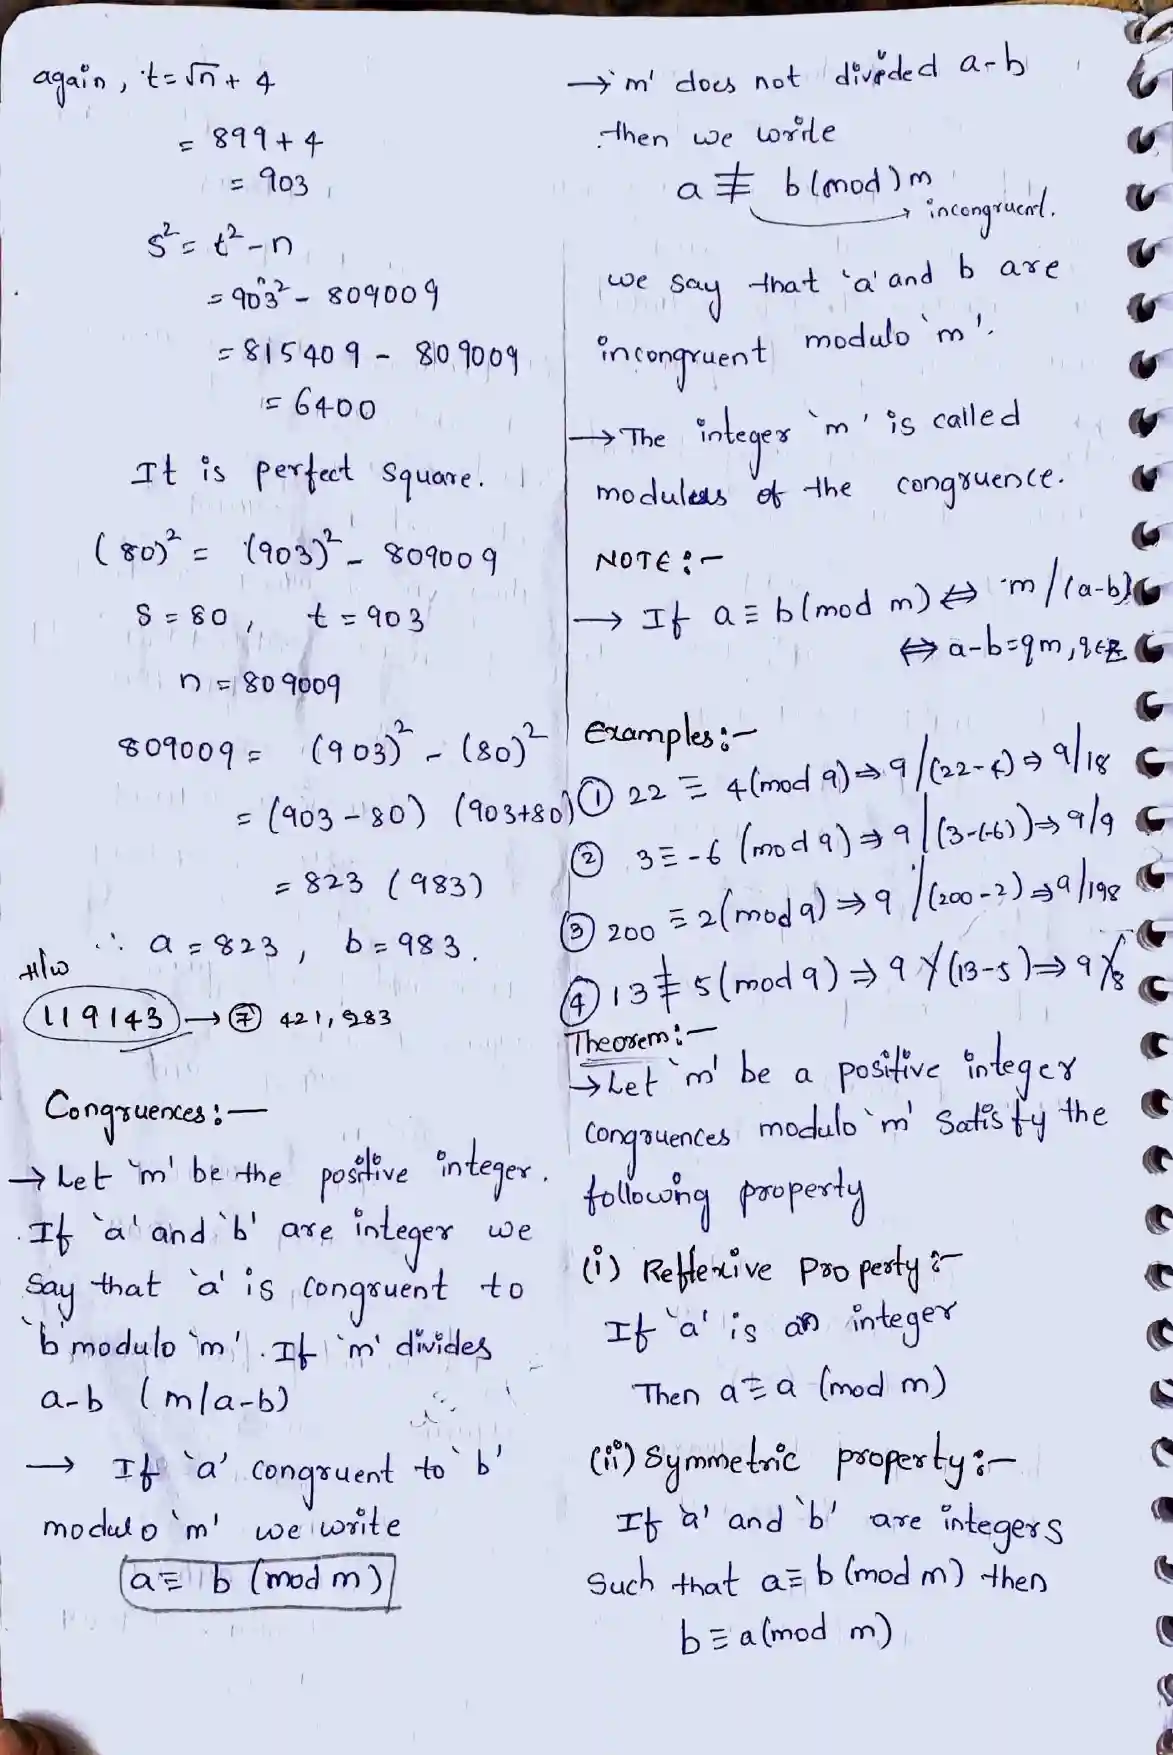 again, t = √n + 4
= 899 + 4
= 903
s² = t² - n
= 903² - 809009
= 815409 - 809009
= 6400
It is perfect square.
(80)² = (903)² - 809009
s = 80, t = 903
n = 809009
809009 = (903)² - (80)²
= (903 - 80) (903+80)
= 823 (983)
∴ a = 823, b = 983.
H/W
119143 → ⑦ 421, 283
Congruences :-
→ Let 'm' be the positive integer.
If 'a' and 'b' are integer we
say that 'a' is congruent to
'b' modulo 'm'. If 'm' divides
a-b (m/a-b)
→ If 'a' congruent to 'b'
modulo 'm' we write
a ≡ b (mod m)
→ 'm' does not divided a-b
then we write
a ≢ b (mod) m
→ incongruent.
we say that 'a' and b are
incongruent modulo 'm'.
→ The integer 'm' is called
modulus of the congruence.
NOTE :-
→ If a ≡ b (mod m) ⇔ m/(a-b)
⇔ a-b = qm, q∈Z
Examples :-
① 22 ≡ 4 (mod 9) ⇒ 9/(22-4) ⇒ 9/18
② 3 ≡ -6 (mod 9) ⇒ 9/(3-(-6)) ⇒ 9/9
③ 200 ≡ 2 (mod 9) ⇒ 9/(200-2) ⇒ 9/198
④ 13 ≢ 5 (mod 9) ⇒ 9∤(13-5) ⇒ 9∤8
Theorem :-
→ Let 'm' be a positive integer
congruences modulo 'm' satisfy the
following property
(i) Reflexive Property :-
If 'a' is an integer
Then a ≡ a (mod m)
(ii) Symmetric property :-
If 'a' and 'b' are integers
Such that a ≡ b (mod m) then
b ≡ a (mod m)